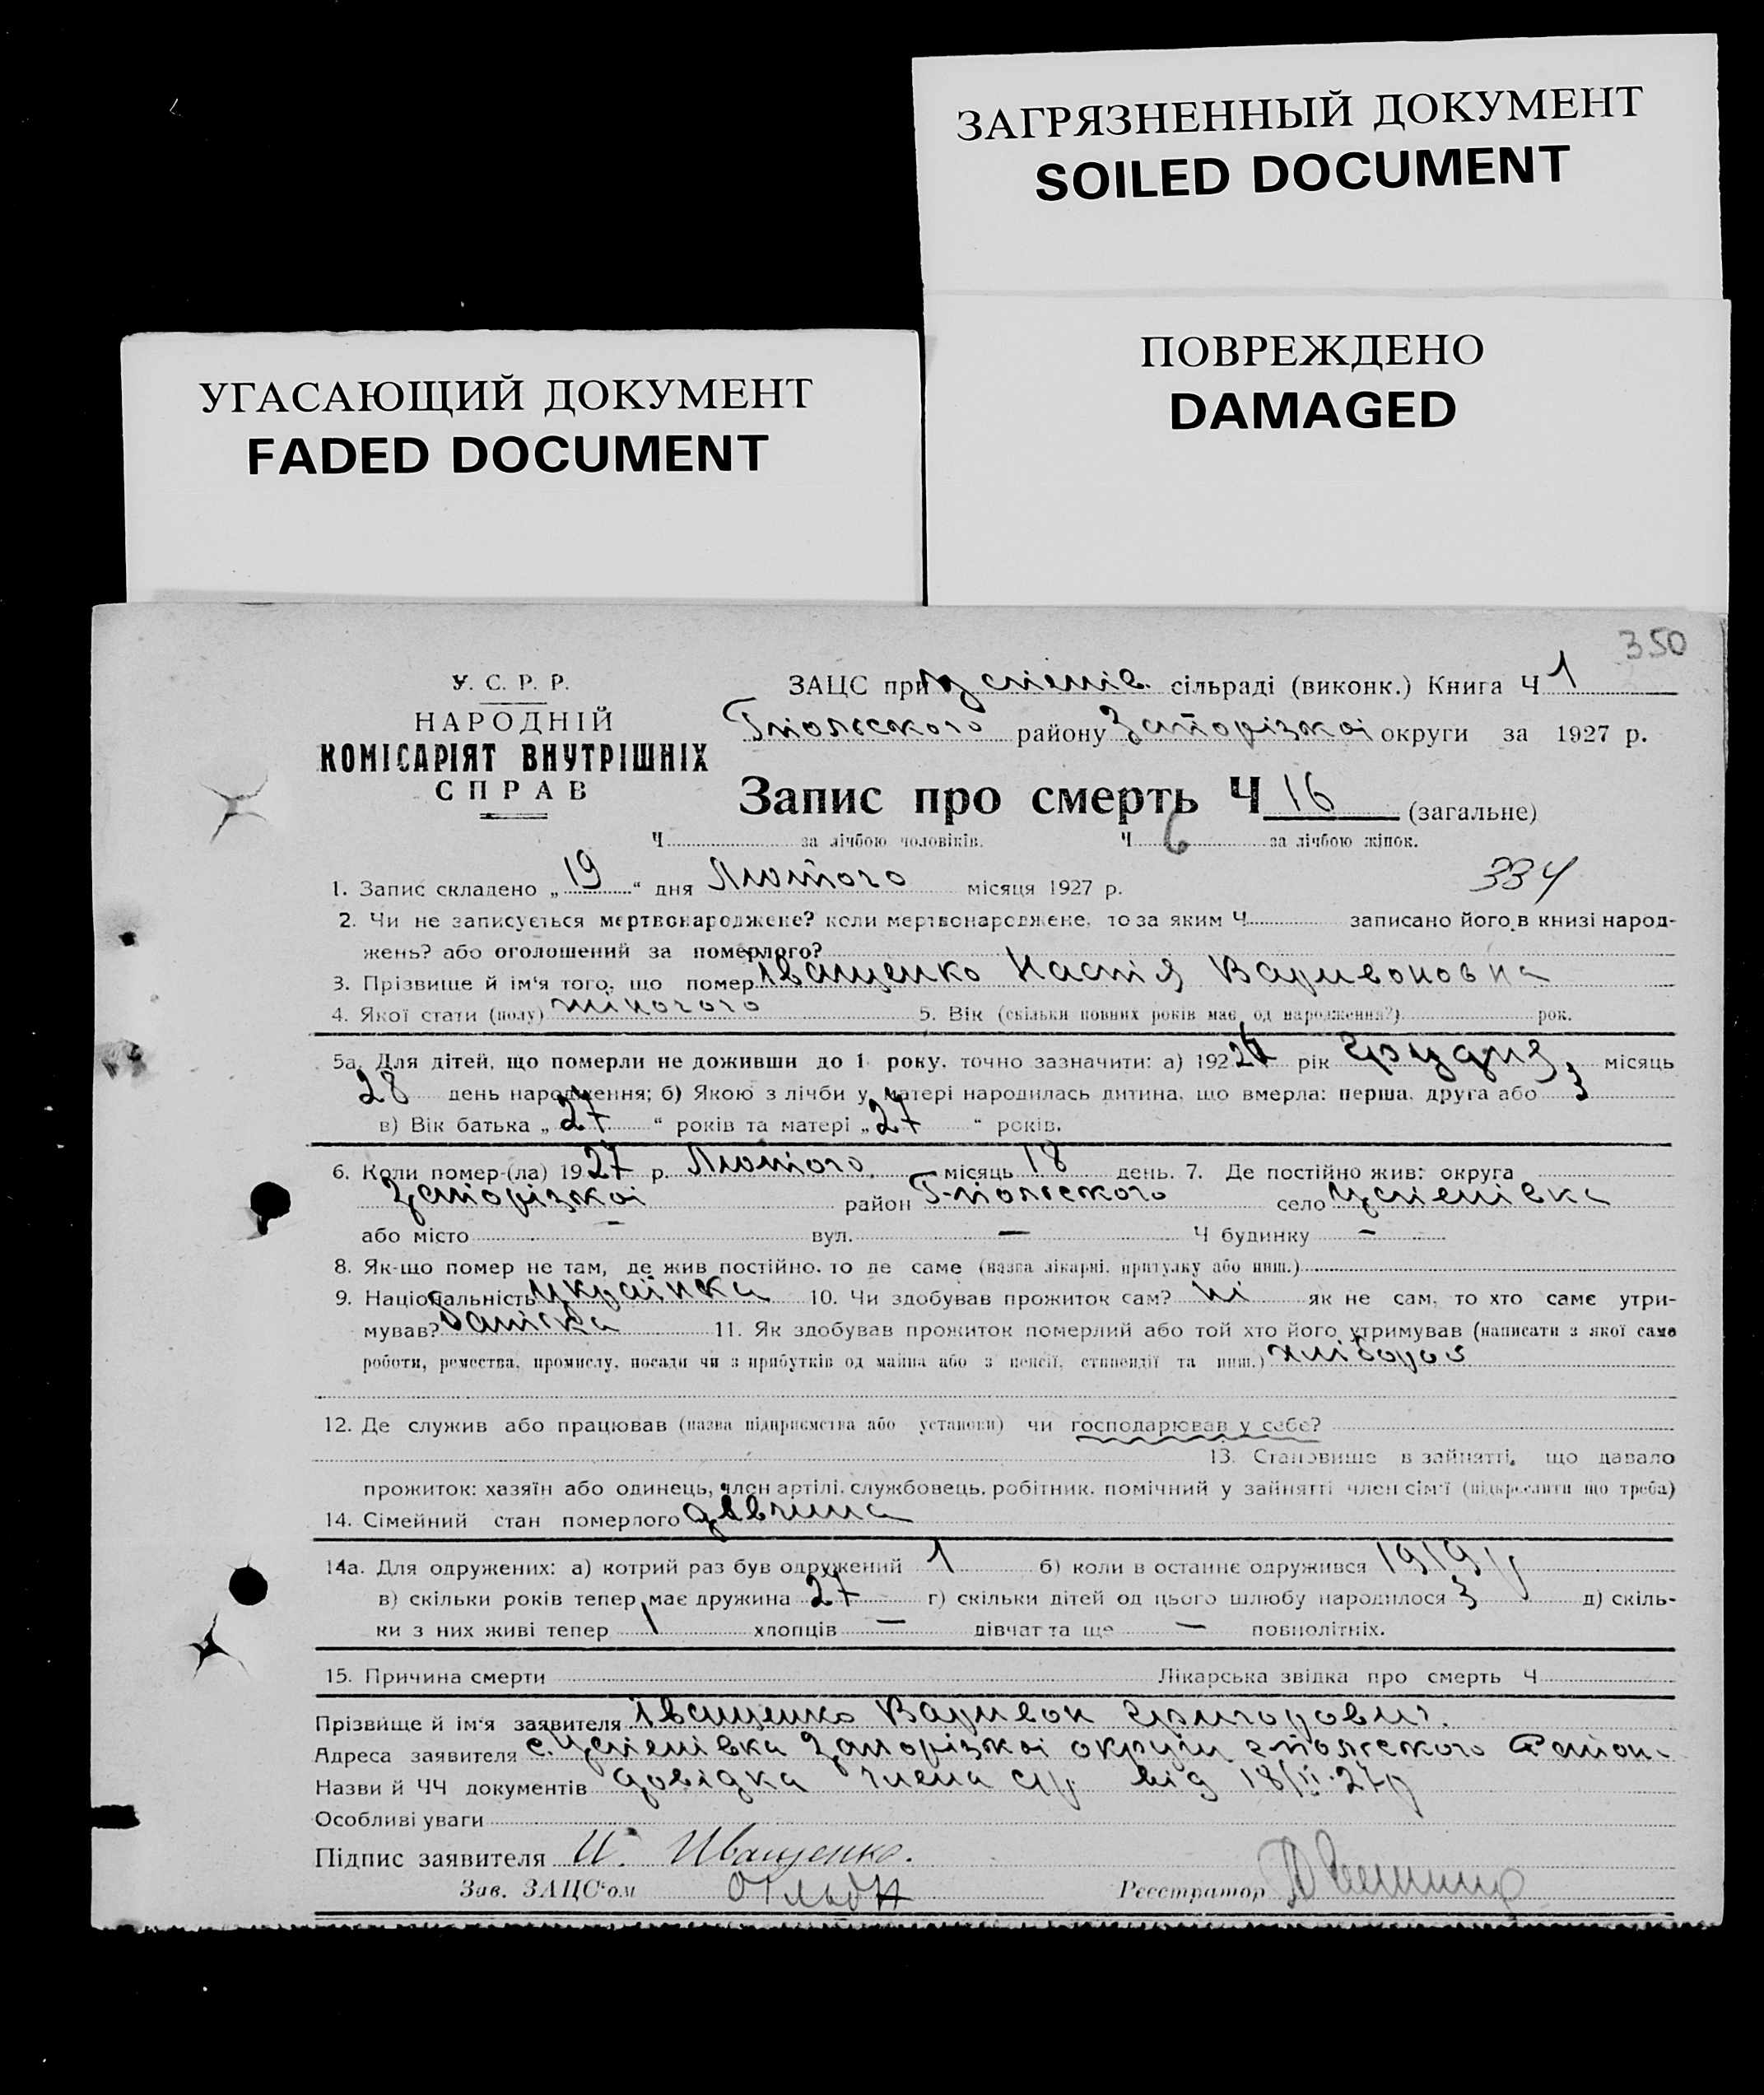 ЗАГРЯЗНЕННЫЙ ДОКУМЕНТ
SOILED DOCUMENT
ПОВРЕЖДЕНО
DAMAGED
УГАСАЮЩИЙ ДОКУМЕНТ
FADED DOCUMENT
350
У. С. Р. Р.
НАРОДНІЙ
КОМІСАРІЯТ ВНУТРІШНІХ
СПРАВ
ЗАЦС при Успенів. сільраді (виконк.) Книга Ч 1
Гпольского району Запорізкоі округи за 1927 р.
Запис про смерть Ч 16 (загальне)
Ч за лічбою чоловіків. Ч 6 за лічбою жінок.
334
1. Запис складено „ 19 “ дня Лютого місяця 1927 р.
2. Чи не записується мертвонароджене? коли мертвонароджене, то за яким Ч записано його в книзі народ-
жень? або оголошений за померлого?
3. Прізвище й ім'я того, що помер Іващенко Настя Варивоновна
4. Якої стати (полу) жіночого 5. Вік (скільки повних років має од народження?) рок.
5а. Для дітей, що померли не доживши до 1 року, точно зазначити: а) 192 рік Грудня місяць
28 день народження; б) Якою з лічби у матері народилась дитина, що вмерла: перша, друга або 3
в) Вік батька „ 27 “ років та матері „ 27 “ років.
6. Коли помер-(ла) 1927 р. Лютого місяць 18 день. 7. Де постійно жив: округа
Запорізкоі район Г-польского село Успенівка
або місто – вул. – Ч будинку –
8. Як-що помер не там, де жив постійно, то де саме (назва лікарні, притулку або инш.)
9. Національність Українка 10. Чи здобував прожиток сам? ні як не сам, то хто саме утри-
мував? Батька 11. Як здобував прожиток померлий або той хто його утримував (написати з якої саме
роботи, ремества, промислу, посади чи з прибутків од майна або з пенсії, стипендії та инш.) хлібороб
12. Де служив або працював (назва підприємства або установи) чи господарював у себе?
13. Становище в зайнятті, що давало
прожиток: хазяїн або одинець, член артілі, службовець, робітник, помічний у зайнятті член сім'ї (підкреслити що треба)
14. Сімейний стан померлого дівчина
14а. Для одружених: а) котрий раз був одружений 1 б) коли в останнє одружився 1919 р
в) скільки років тепер має дружина 27 г) скільки дітей од цього шлюбу народилося 3 д) скіль-
ки з них живі тепер 1 хлопців – дівчат та ще – повнолітніх.
15. Причина смерти Лікарська звідка про смерть Ч
Прізвище й ім'я заявителя Іващенко Варивон Григорович.
Адреса заявителя с. Успенівка Запорізкоі округи Г-польского Район.
Назви й ЧЧ документів довідка члена с/р. від 18/ІІ-27р
Особливі уваги
Підпис заявителя И. Иващенко.
Зав. ЗАЦС'ом Реєстратор